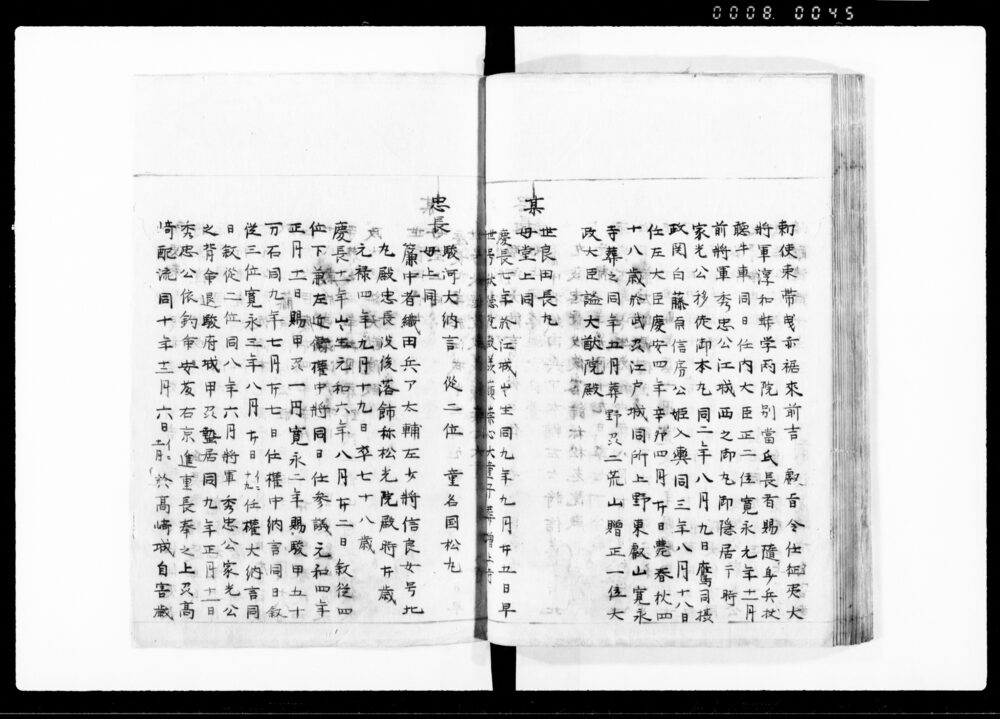 0008 0045
勅使束帯曳裾来前吉 叙旨令任征夷大
将軍淳和奨学両院別当氏長者賜隨身兵杖
聴牛車同日任内大臣正二位寛永九年十一月
前将軍秀忠公江城西之御丸御隠居于時
家光公移徙御本丸同二年八月九日鷹司摂
政関白藤原信房公姫入輿同三年八月十八日
任左大臣慶安四年辛卯四月廿日薨春秋四
十八歳於武刕江戸城同所上野東叡山寛永
寺葬之同年五月葬野刕二荒山贈正一位大
政大臣謚大猷院殿
某
世良田長丸
母堂上同
慶長七年於江城出生同九年九月廿五日早
世号
忠長
母上同
駿河大納言 従二位 童名国松丸
簾中者織田兵ア太輔左女将信良女号北
丸殿忠長没後落餝称松光院殿時廿歳
元禄四年九月十九日卒七十八歳
慶長十一年出生元和六年八月廿二日叙従四
位下兼左近衛権中将同日任参議元和四年
正月十一日賜甲刕一円寛永二年賜駿甲五十
万石同九年七月廿七日任権中納言同日叙
従三位寛永三年八月廿日任権大納言同
日叙従二位同八年六月将軍秀忠公家光公
之背命退駿府城甲刕蟄居同九年正月十一日
秀忠公依釣命安友右京進重長奉之上刕高
崎配流同十年十二月六日於高崎城自害歳